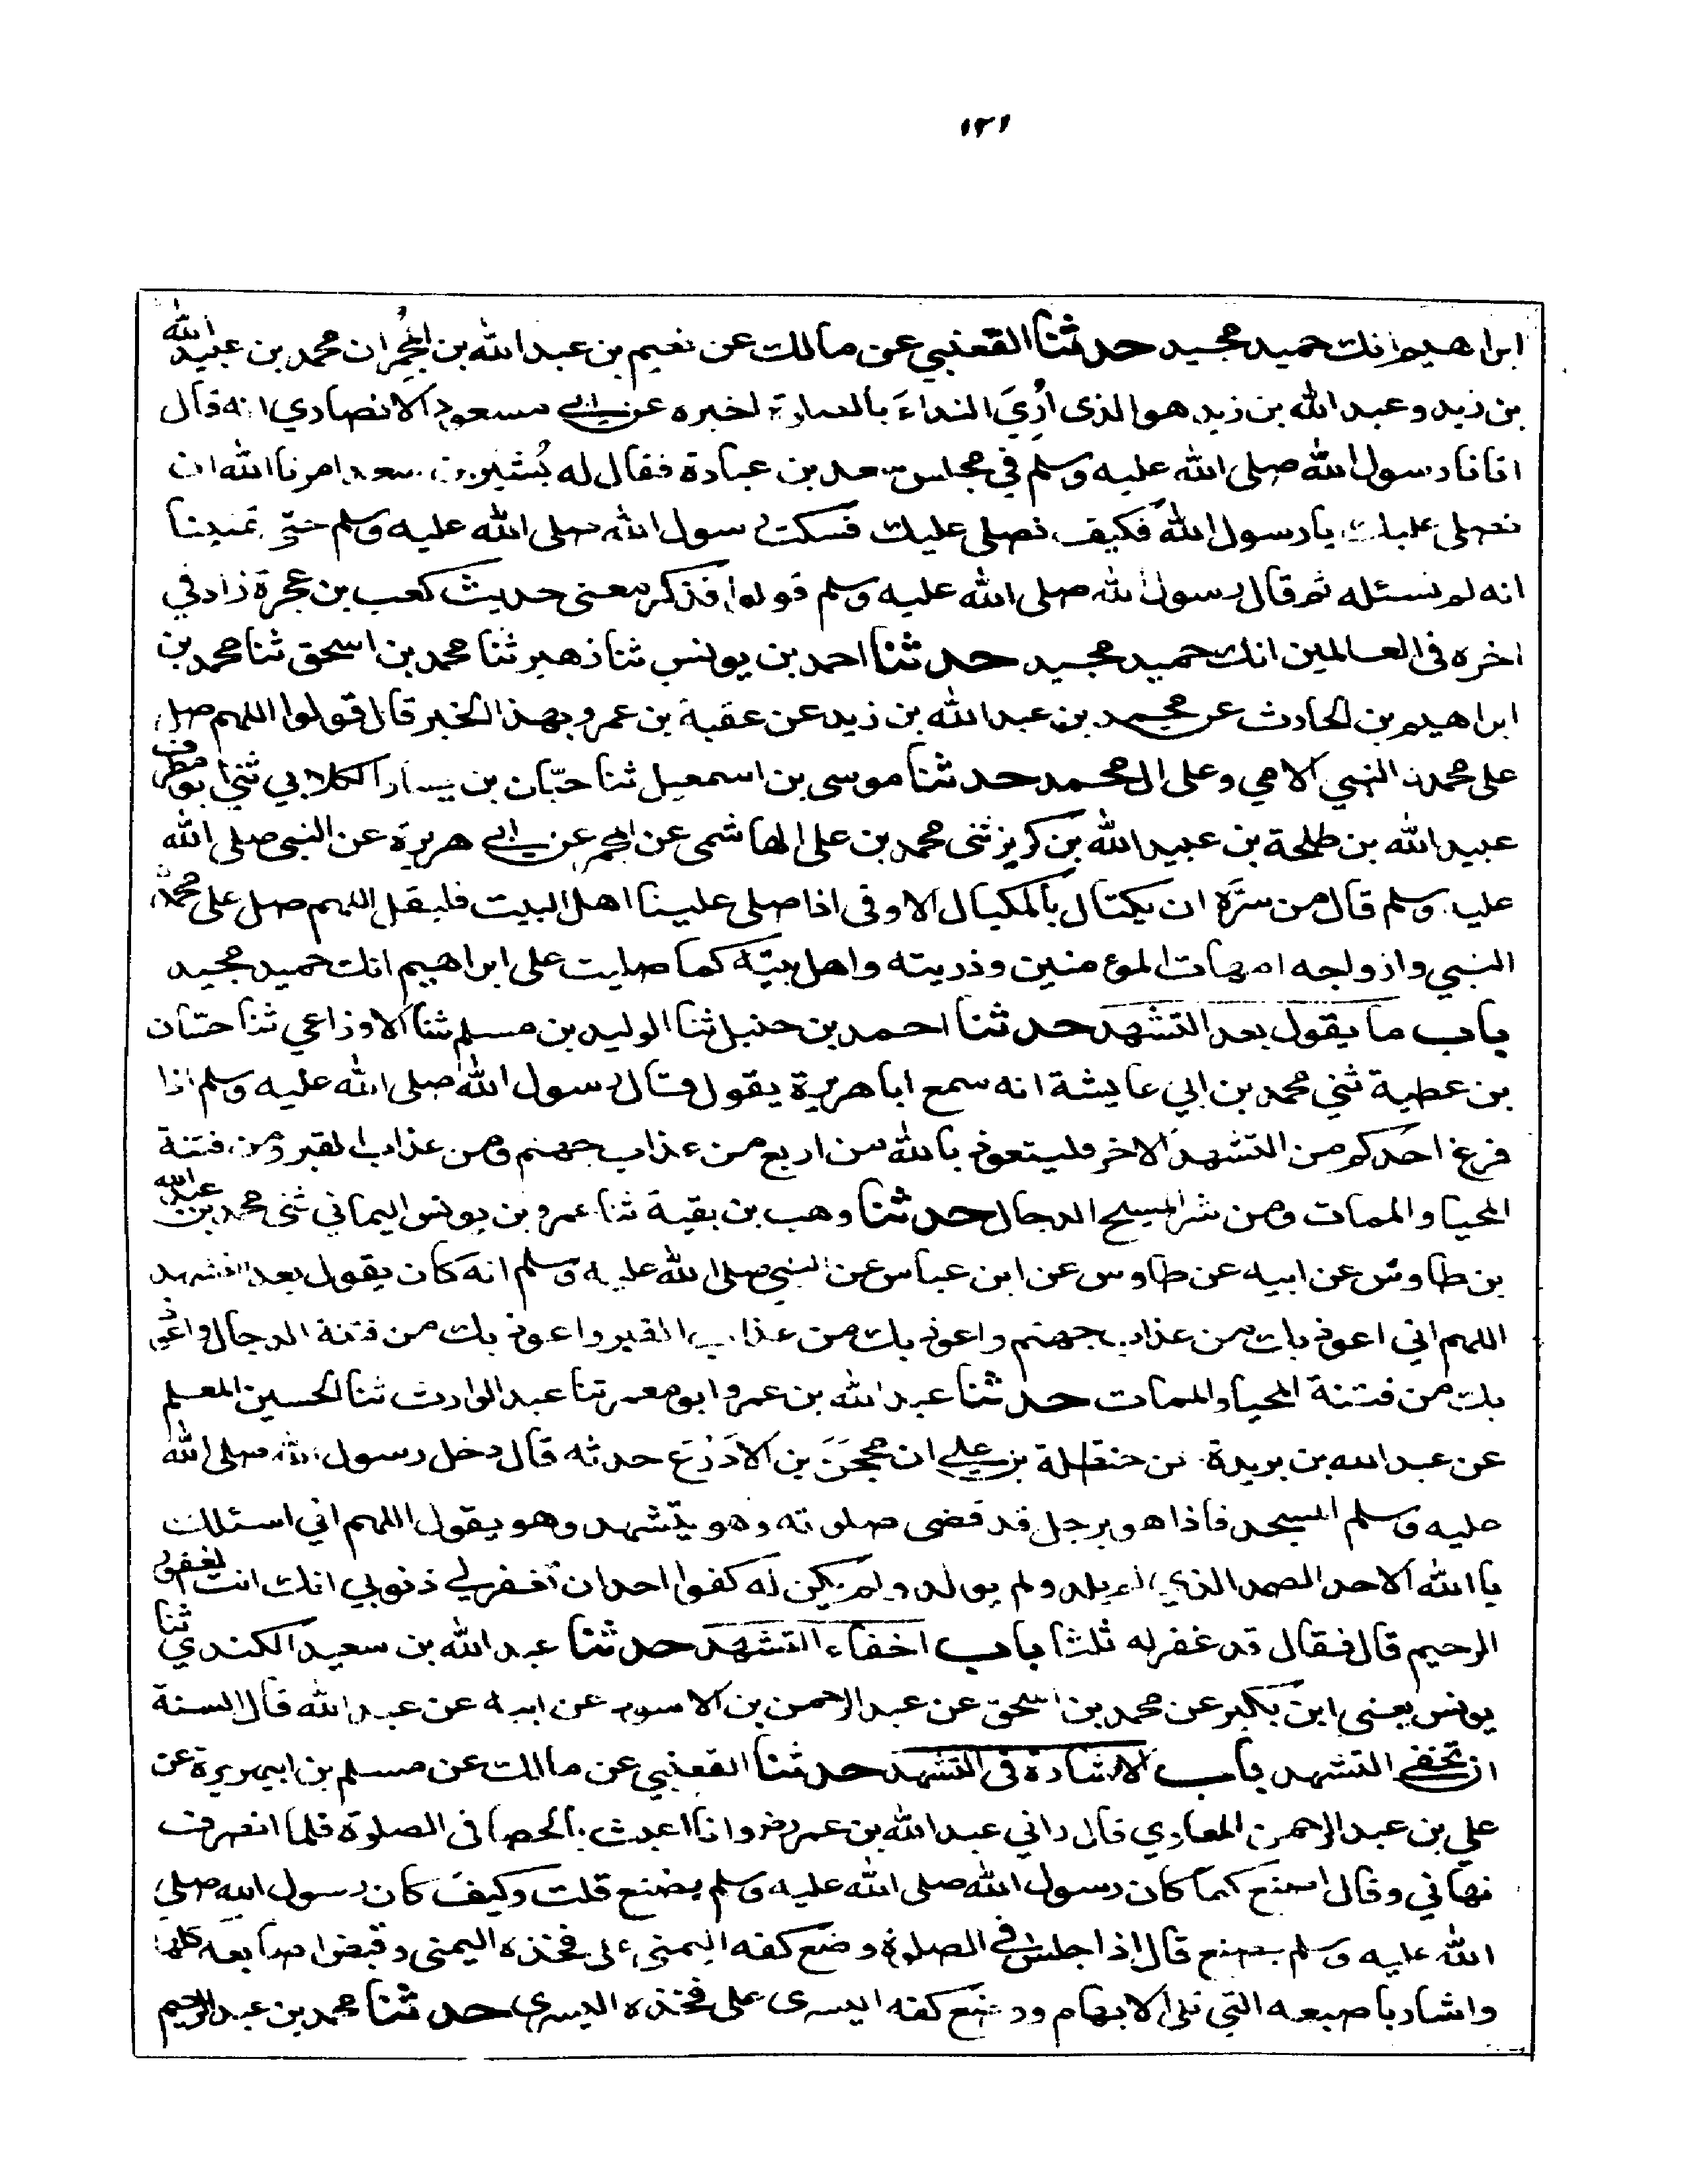 ١٢١
ابراهيم انك حميد مجيد حدثنا القعنبي عن مالك عن نعيم بن عبد الله بن المُجْمِر ان محمد بن عبيد الله
بن زيد وعبد الله بن زيد هو الذى أُرِيَ النداءَ بالصلوة اخبره عن ابي مسعود الانصاري انه قال
اتانا رسول الله صلى الله عليه وسلم في مجلس سعد بن عبادة فقال له بُشير بن سعد امرنا الله ان
نصلى عليك يا رسول الله فكيف نصلى عليك فسكت رسول الله صلى الله عليه وسلم حتى تمنينا
انه لم نسئله ثم قال رسول الله صلى الله عليه وسلم قولوا فذكر معنى حديث كعب بن عجرة زاد في
اخره فى العالمين انك حميد مجيد حدثنا احمد بن يونس ثنا زهير ثنا محمد بن اسحق ثنا محمد بن
ابراهيم بن الحارث عن محمد بن عبد الله بن زيد عن عقبة بن عمرو بهذا الخبر قال قولوا اللهم صل
على محمد النبي الامي وعلى ال محمد حدثنا موسى بن اسمعيل ثنا حبّان بن يسار الكلابي ثني ابو مطرف
عبيد الله بن طلحة بن عبيد الله بن كريز ثنى محمد بن على الهاشمى عن المجمر عن ابي هريرة عن النبى صلى الله
عليه وسلم قال من سَرَّه ان يكتال بالمكيال الاوفى اذا صلى علينا اهل البيت فليقل اللهم صل على محمد
النبي وازواجه امهات المؤمنين وذريته واهل بيته كما صليت على ابراهيم انك حميد مجيد
باب ما يقول بعد التشهد حدثنا احمد بن حنبل ثنا الوليد بن مسلم ثنا الاوزاعي ثنا حسّان
بن عطية ثني محمد بن ابي عايشة انه سمع ابا هريرة يقول قال رسول الله صلى الله عليه وسلم اذا
فرغ احدكم من التشهد الاخر فليتعوذ بالله من اربع من عذاب جهنم ومن عذاب القبر ومن فتنة
المحيا والممات ومن شر المسيح الدجال حدثنا وهب بن بقية ثنا عمرو بن يونس اليماني ثنى محمد بن عبد الله
بن طاوس عن ابيه عن طاوس عن ابن عباس عن النبي صلى الله عليه وسلم انه كان يقول بعد التشهد
اللهم اني اعوذ بك من عذاب جهنم واعوذ بك من عذاب القبر واعوذ بك من فتنة الدجال واعوذ
بك من فتنة المحيا والممات حدثنا عبد الله بن عمرو ابو معمر ثنا عبد الوارث ثنا الحسين المعلم
عن عبد الله بن بريدة عن حنظلة بن علي ان محجَنَ بن الاَدْرَع حدثه قال دخل رسول الله صلى الله
عليه وسلم المسجد فاذا هو برجل قد قضى صلوته وهو يتشهد وهو يقول اللهم اني اسئلك
يا الله الاحد الصمد الذي لم يلد ولم يولد ولم يكن له كفوا احد ان تغفر لي ذنوبي انك انت الغفور
الرحيم قال فقال قد غفر له ثلثا باب اخفاء التشهد حدثنا عبد الله بن سعيد الكندي ثنا
يونس يعنى ابن بكير عن محمد بن اسحق عن عبد الرحمن بن الاسود عن ابيه عن عبد الله قال السنة
ان تخفى التشهد باب الاشارة فى التشهد حدثنا القعنبي عن مالك عن مسلم بن ابي مريم عن
علي بن عبد الرحمن المعاوي قال راني عبد الله بن عمر وانا اعبث بالحصا فى الصلوة فلما انصرفت
نهاني وقال اصنع كما كان رسول الله صلى الله عليه وسلم يصنع قلت وكيف كان رسول الله صلى
الله عليه وسلم يصنع قال اذا جلس في الصلوة وضع كفه اليمنى على فخذه اليمنى وقبض اصابعه كلها
واشار باصبعه التي تلى الابهام ووضع كفه اليسرى على فخذه اليسرى حدثنا محمد بن عبد الرحيم